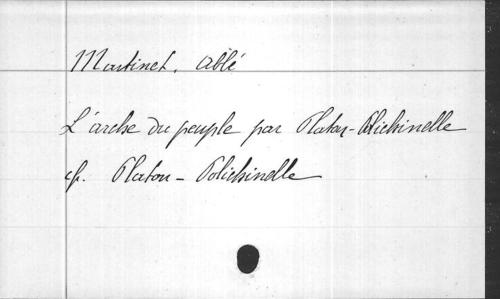 Martinet, Abbé
L'arche du peuple par Platon-Polichinelle
cf. Platon - Polichinelle